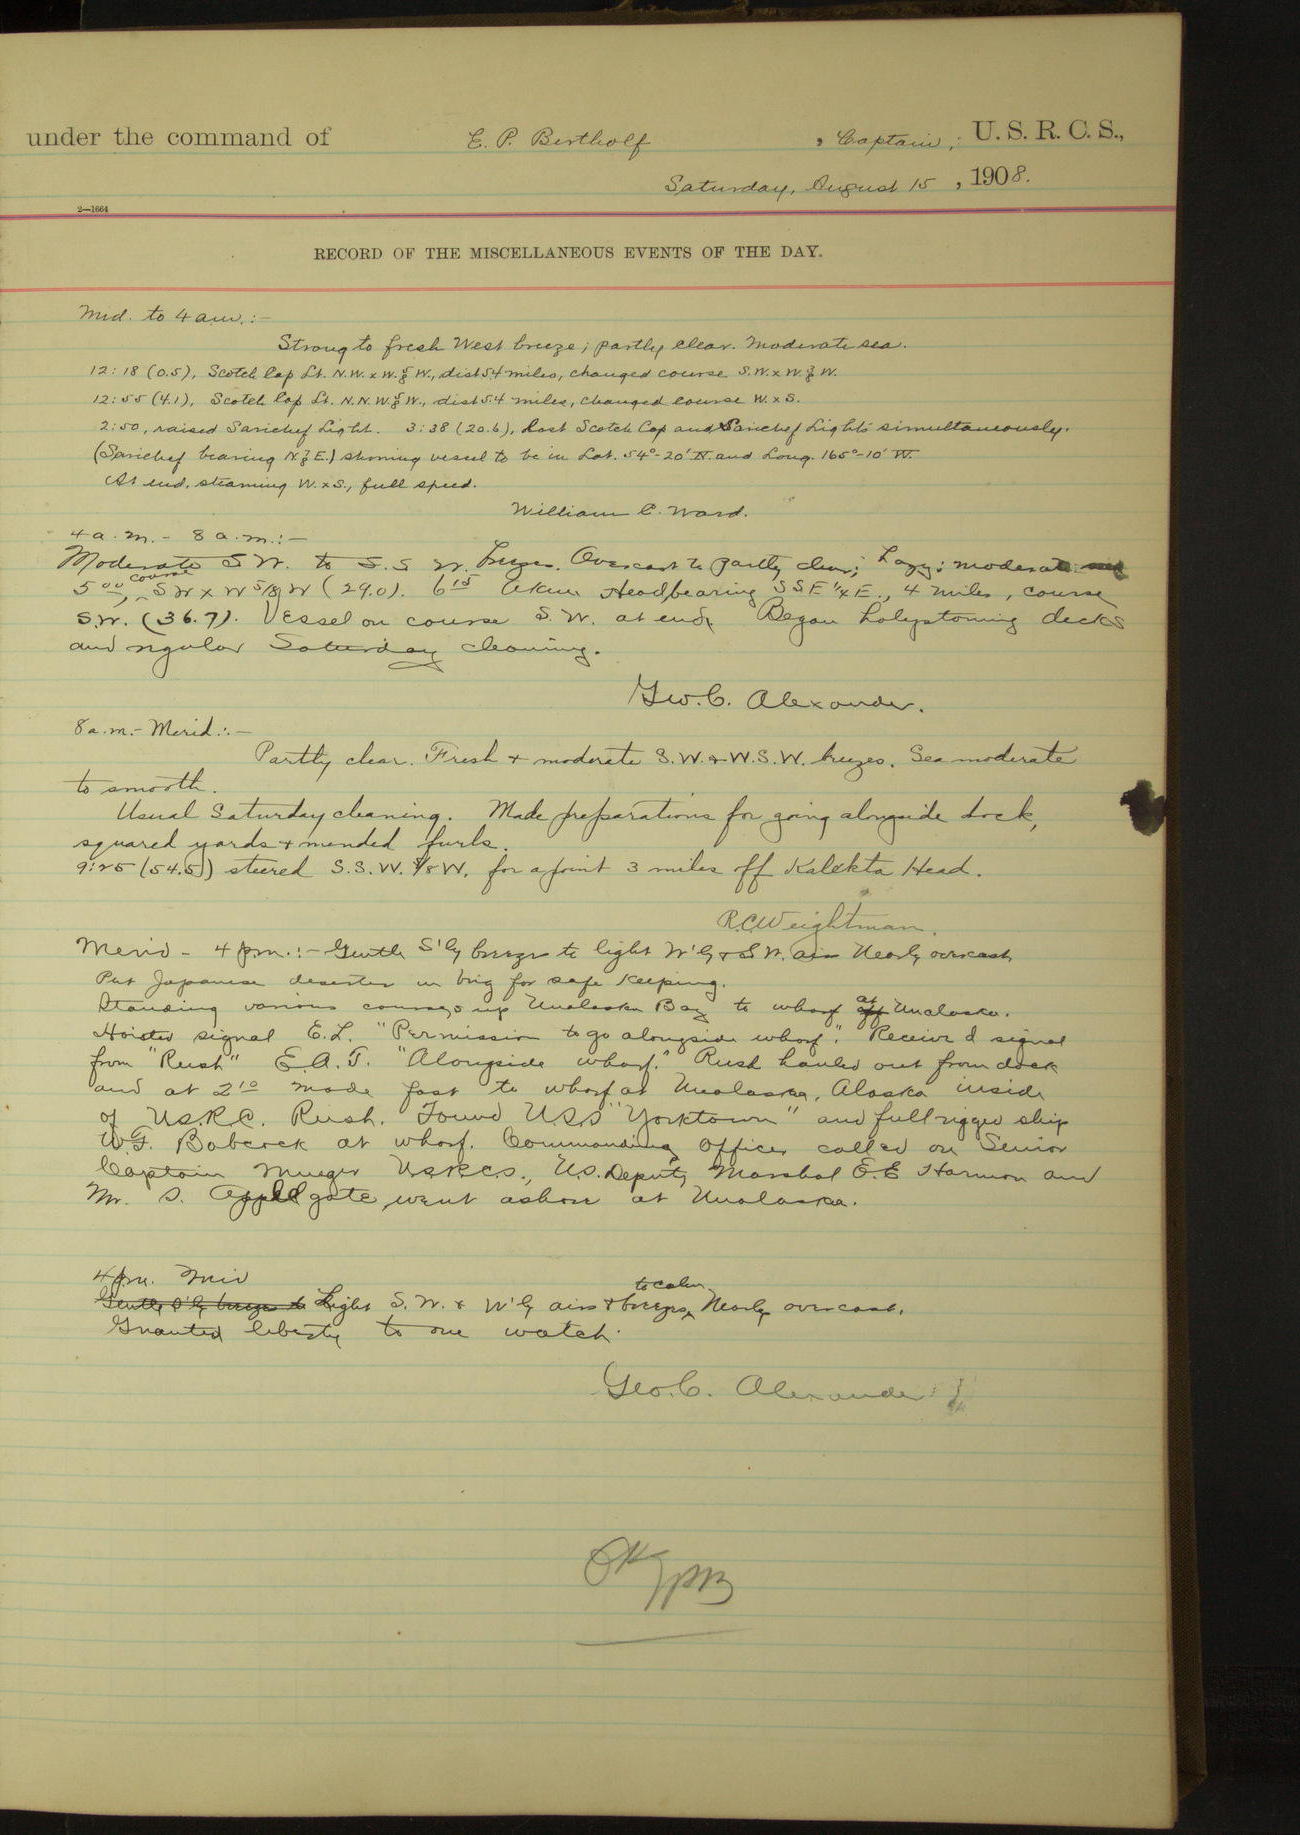 under the command of E. P. Bertholf, Captain, U. S. R. C. S.,
Saturday, August 15, 1908.
2—1664
RECORD OF THE MISCELLANEOUS EVENTS OF THE DAY.
Mid. to 4 a.m.:-
Strong to fresh West breeze; partly clear. Moderate sea.
12:18 (0.5), Scotch Cap Lt. N.W. x W. W., dist 5.4 miles, changed course S.W. x W. W.
12:55 (4.1), Scotch Cap Lt. N.N.W. W., dist 5.4 miles, changed course W. x S.
2:50, raised Sarichef Light. 3:38 (20.6), Lost Scotch Cap and Sarichef Lights simultaneously.
(Sarichef bearing N. E.) showing vessel to be in Lat. 54°-20' N. and Long. 165°-10' W.
At end, steaming W. x S., full speed.
William C. Ward.
4 a.m. - 8 a.m.:-
Moderate S W. to S. S W. breeze. Overcast to partly clear; hazy; moderate sea
5 00, course S W x W 5/8 W (29.0). 6 15 Akun Head bearing SSE 1/4 E., 4 miles, course
S.W. (36.7). Vessel on course S. W. at end. Began holystoning decks
and regular Saturday cleaning.
Geo. C. Alexander.
8 a.m. - Merid.:-
Partly clear. Fresh + moderate S.W. + W.S.W. breezes. Sea moderate
to smooth.
Usual Saturday cleaning. Made preparations for going alongside dock,
squared yards + mended furls.
9:25 (54.5) steered S.S.W. 5/8 W. for a point 3 miles off Kalekta Head.
R.C. Weightman.
Merid - 4 p.m.:- Gentle S'ly breeze to light W'ly + S W. airs Nearly overcast
Put Japanese deserter in brig for safe keeping.
Standing various courses up Unalaska Bay to wharf off at Unalaska.
Hoisted signal E.L. "Permission to go alongside wharf". Received signal
from "Rush" E.A.T. "Alongside wharf." Rush hauled out from dock
and at 2 10 made fast to wharf at Unalaska, Alaska inside
of U.S.R.C. Rush. Found USS "Yorktown" and full rigged ship
W.F. Babcock at wharf. Commanding Officer called on Senior
Captain Munger U.S.R.C.S., U.S. Deputy Marshal E.E Harmon and
Mr. S. Applegate went ashore at Unalaska.
4 p.m. Mid
Gentle S'ly breeze to Light S. W. + W'ly airs + breezes to calm, Nearly overcast.
Granted liberty to one watch.
Geo. C. Alexander
OK EPB